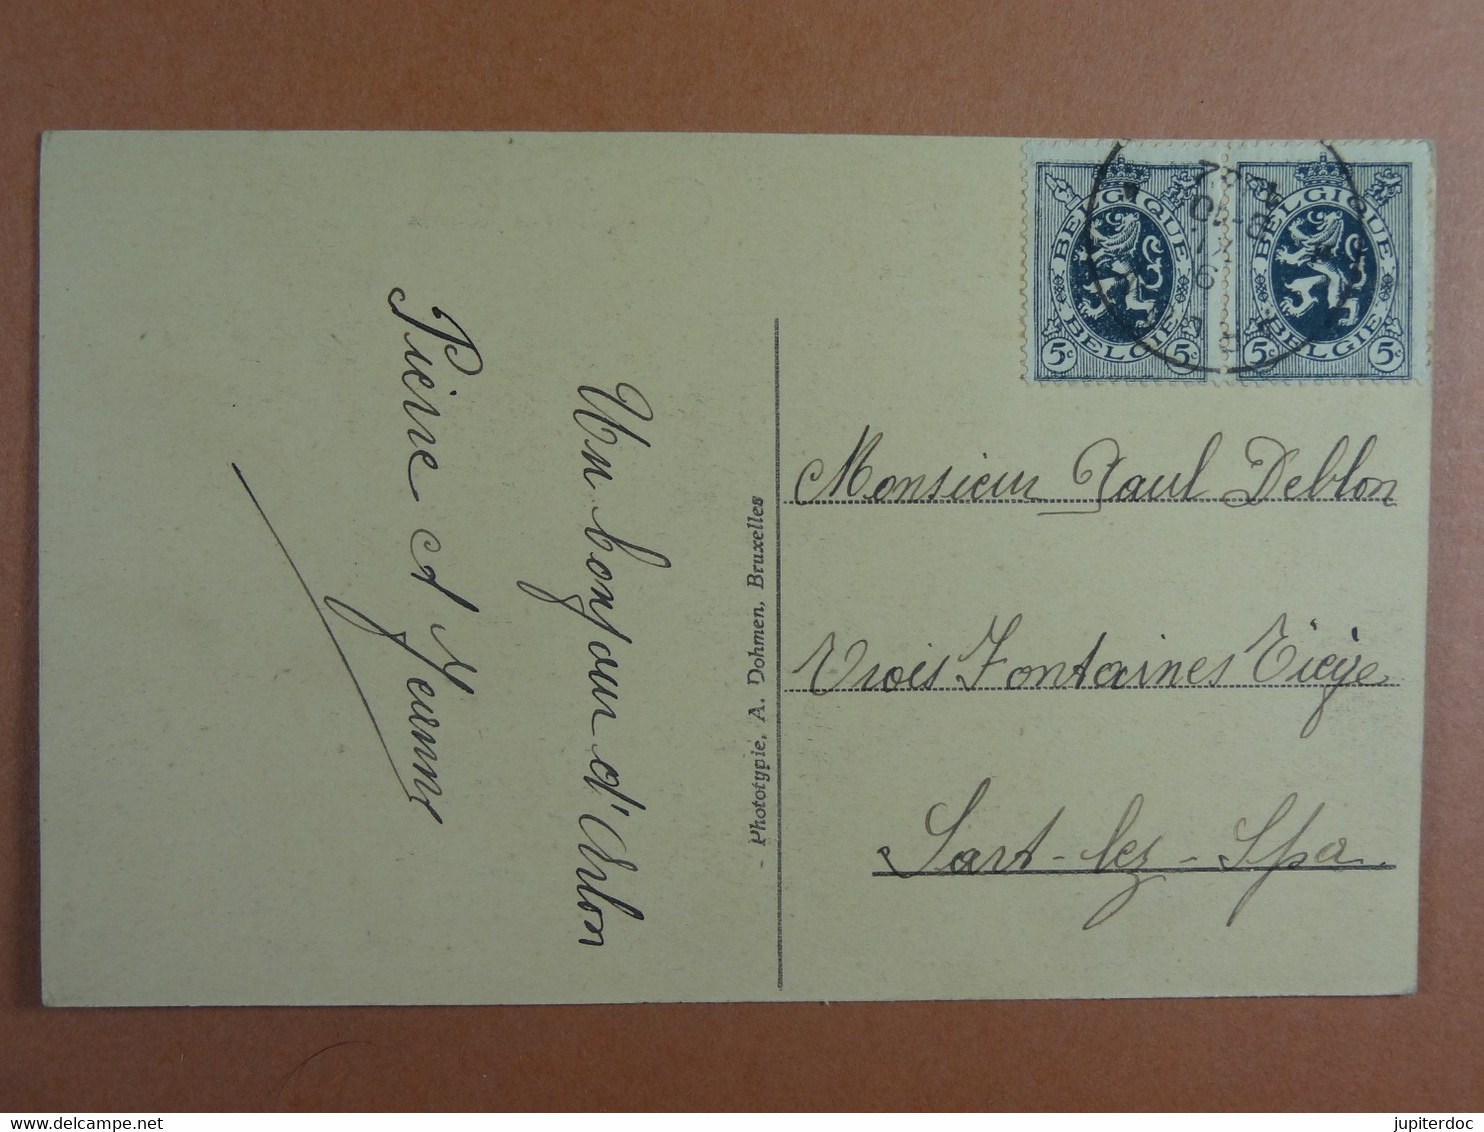 Un bonjour d'Arlon
Pierre et Jeanne
- Phototypie, A. Dohmen, Bruxelles
BELGIQUE
BELGIE
5c 5c
BELGIQUE
BELGIE
5c 5c
Monsieur Paul Deblon
Trois Fontaines Tiège
Sart-lez-Spa
jupiterdoc